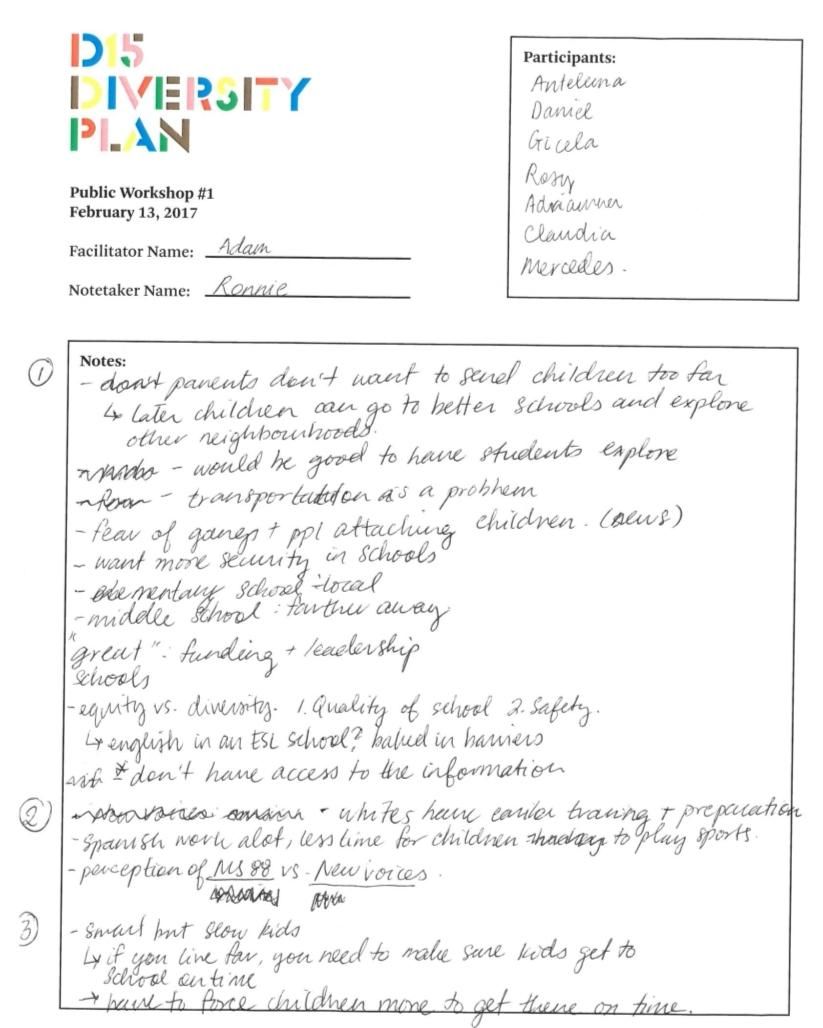 D15
DIVERSITY
PLAN
Public Workshop #1
February 13, 2017
Facilitator Name: Adam
Notetaker Name: Ronnie
Participants:
Daniel
Gicela
Rosy
Claudia
Mercedes.
①
Notes:
- don't parents don't want to send children too far
↳ later children can go to better schools and explore
other neighbourhoods.
- would be good to have students explore
- transportation as a problem
- fear of gangs + ppl attaching children. (news)
- want more security in schools
- elementary school : local
- middle school : farther away
"great" : funding + leadership
schools
- equity vs. diversity. 1. Quality of school 2. Safety.
↳ english in an ESL school? baked in barriers
* don't have access to the information
②
- whites have earlier training + preparation
- Spanish work alot, less time for children to play sports.
- perception of MS 88 vs. New voices.
③
- smart but slow kids
↳ if you live far, you need to make sure kids get to
school on time
→ have to force children more to get there on time.